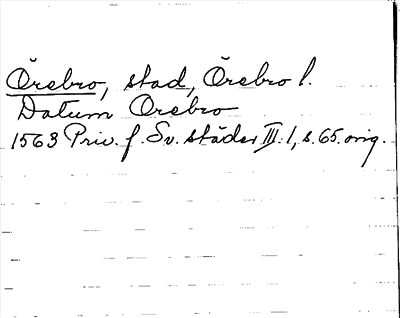 Örebro, stad, Örebro l.
Datum Örebro
1563 Priv. f. Sv. städer III:1, s. 65. orig.